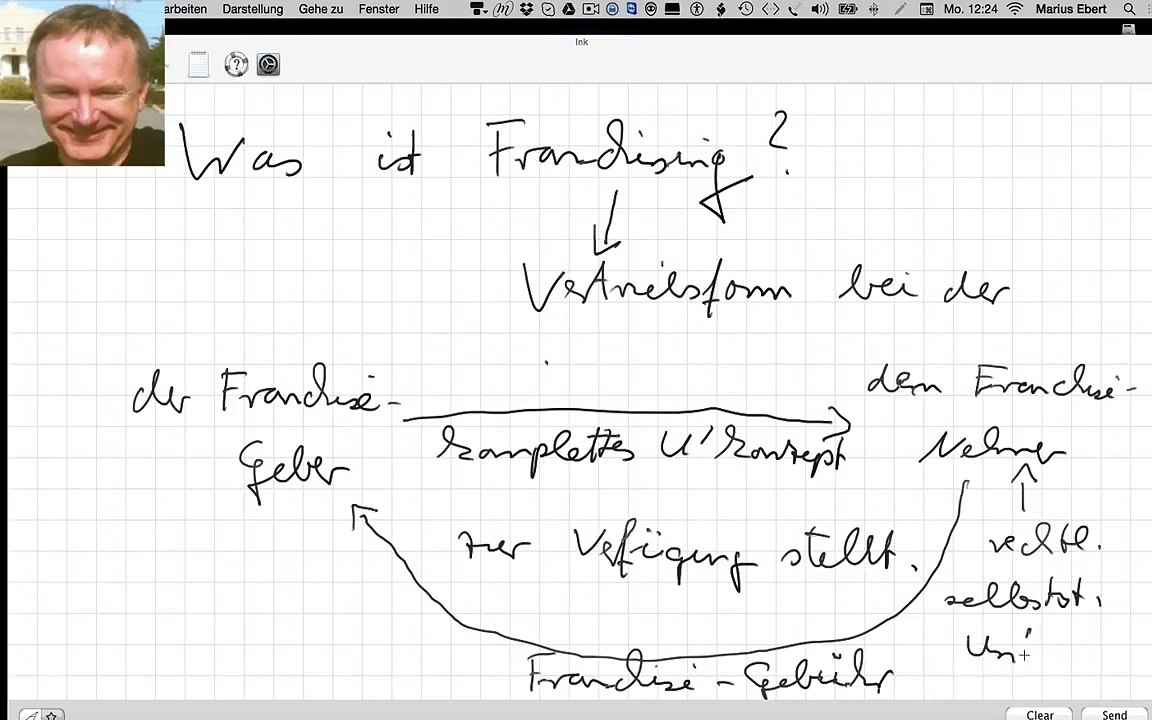 arbeiten Darstellung Gehe zu Fenster Hilfe Mo. 12:24 Marius Ebert
Ink
Was ist Franchising?
Vertriebsform bei der
der Franchise-
Geber
komplettes U'konzept
dem Franchise-
Nehmer
zur Verfügung stellt.
rechtl.
selbstst.
Franchise-Gebühr
Clear Send